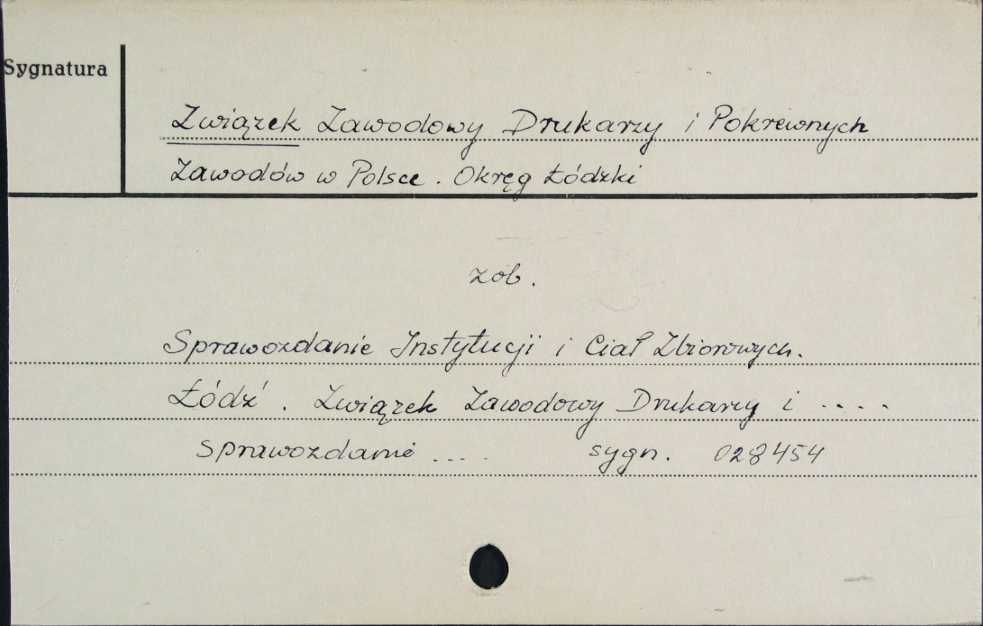 Sygnatura
Związek Zawodowy Drukarzy i Pokrewnych
Zawodów w Polsce. Okręg Łódzki
zob.
Sprawozdanie Instytucji i Ciał Zbiorowych.
Łódź. Związek Zawodowy Drukarzy i ....
Sprawozdanie .... sygn. 028454